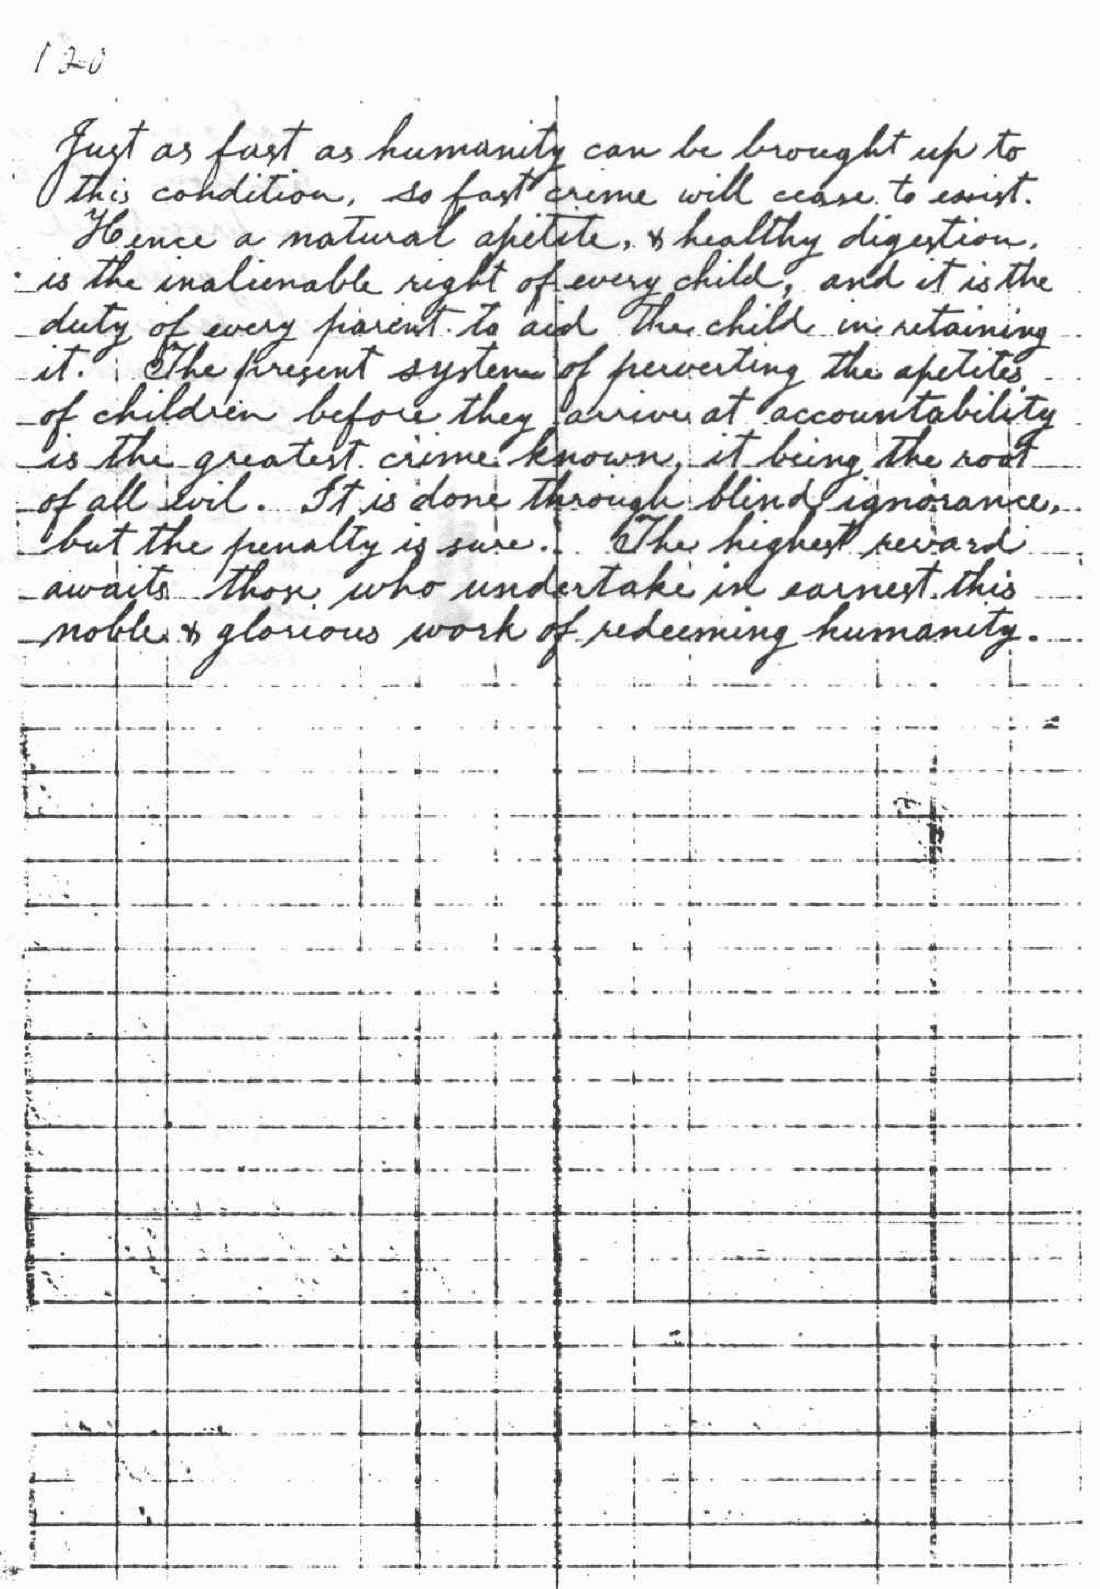 120
Just as fast as humanity can be brought up to
this condition, so fast crime will cease to exist.
Hence a natural apetite, & healthy digestion,
is the inalienable right of every child, and it is the
duty of every parent to aid the child in retaining
it. The present system of perverting the apetites
of children before they arrive at accountability
is the greatest crime known, it being the root
of all evil. It is done through blind ignorance,
but the penalty is sure. The highest reward
awaits those who undertake in earnest this
noble & glorious work of redeeming humanity.